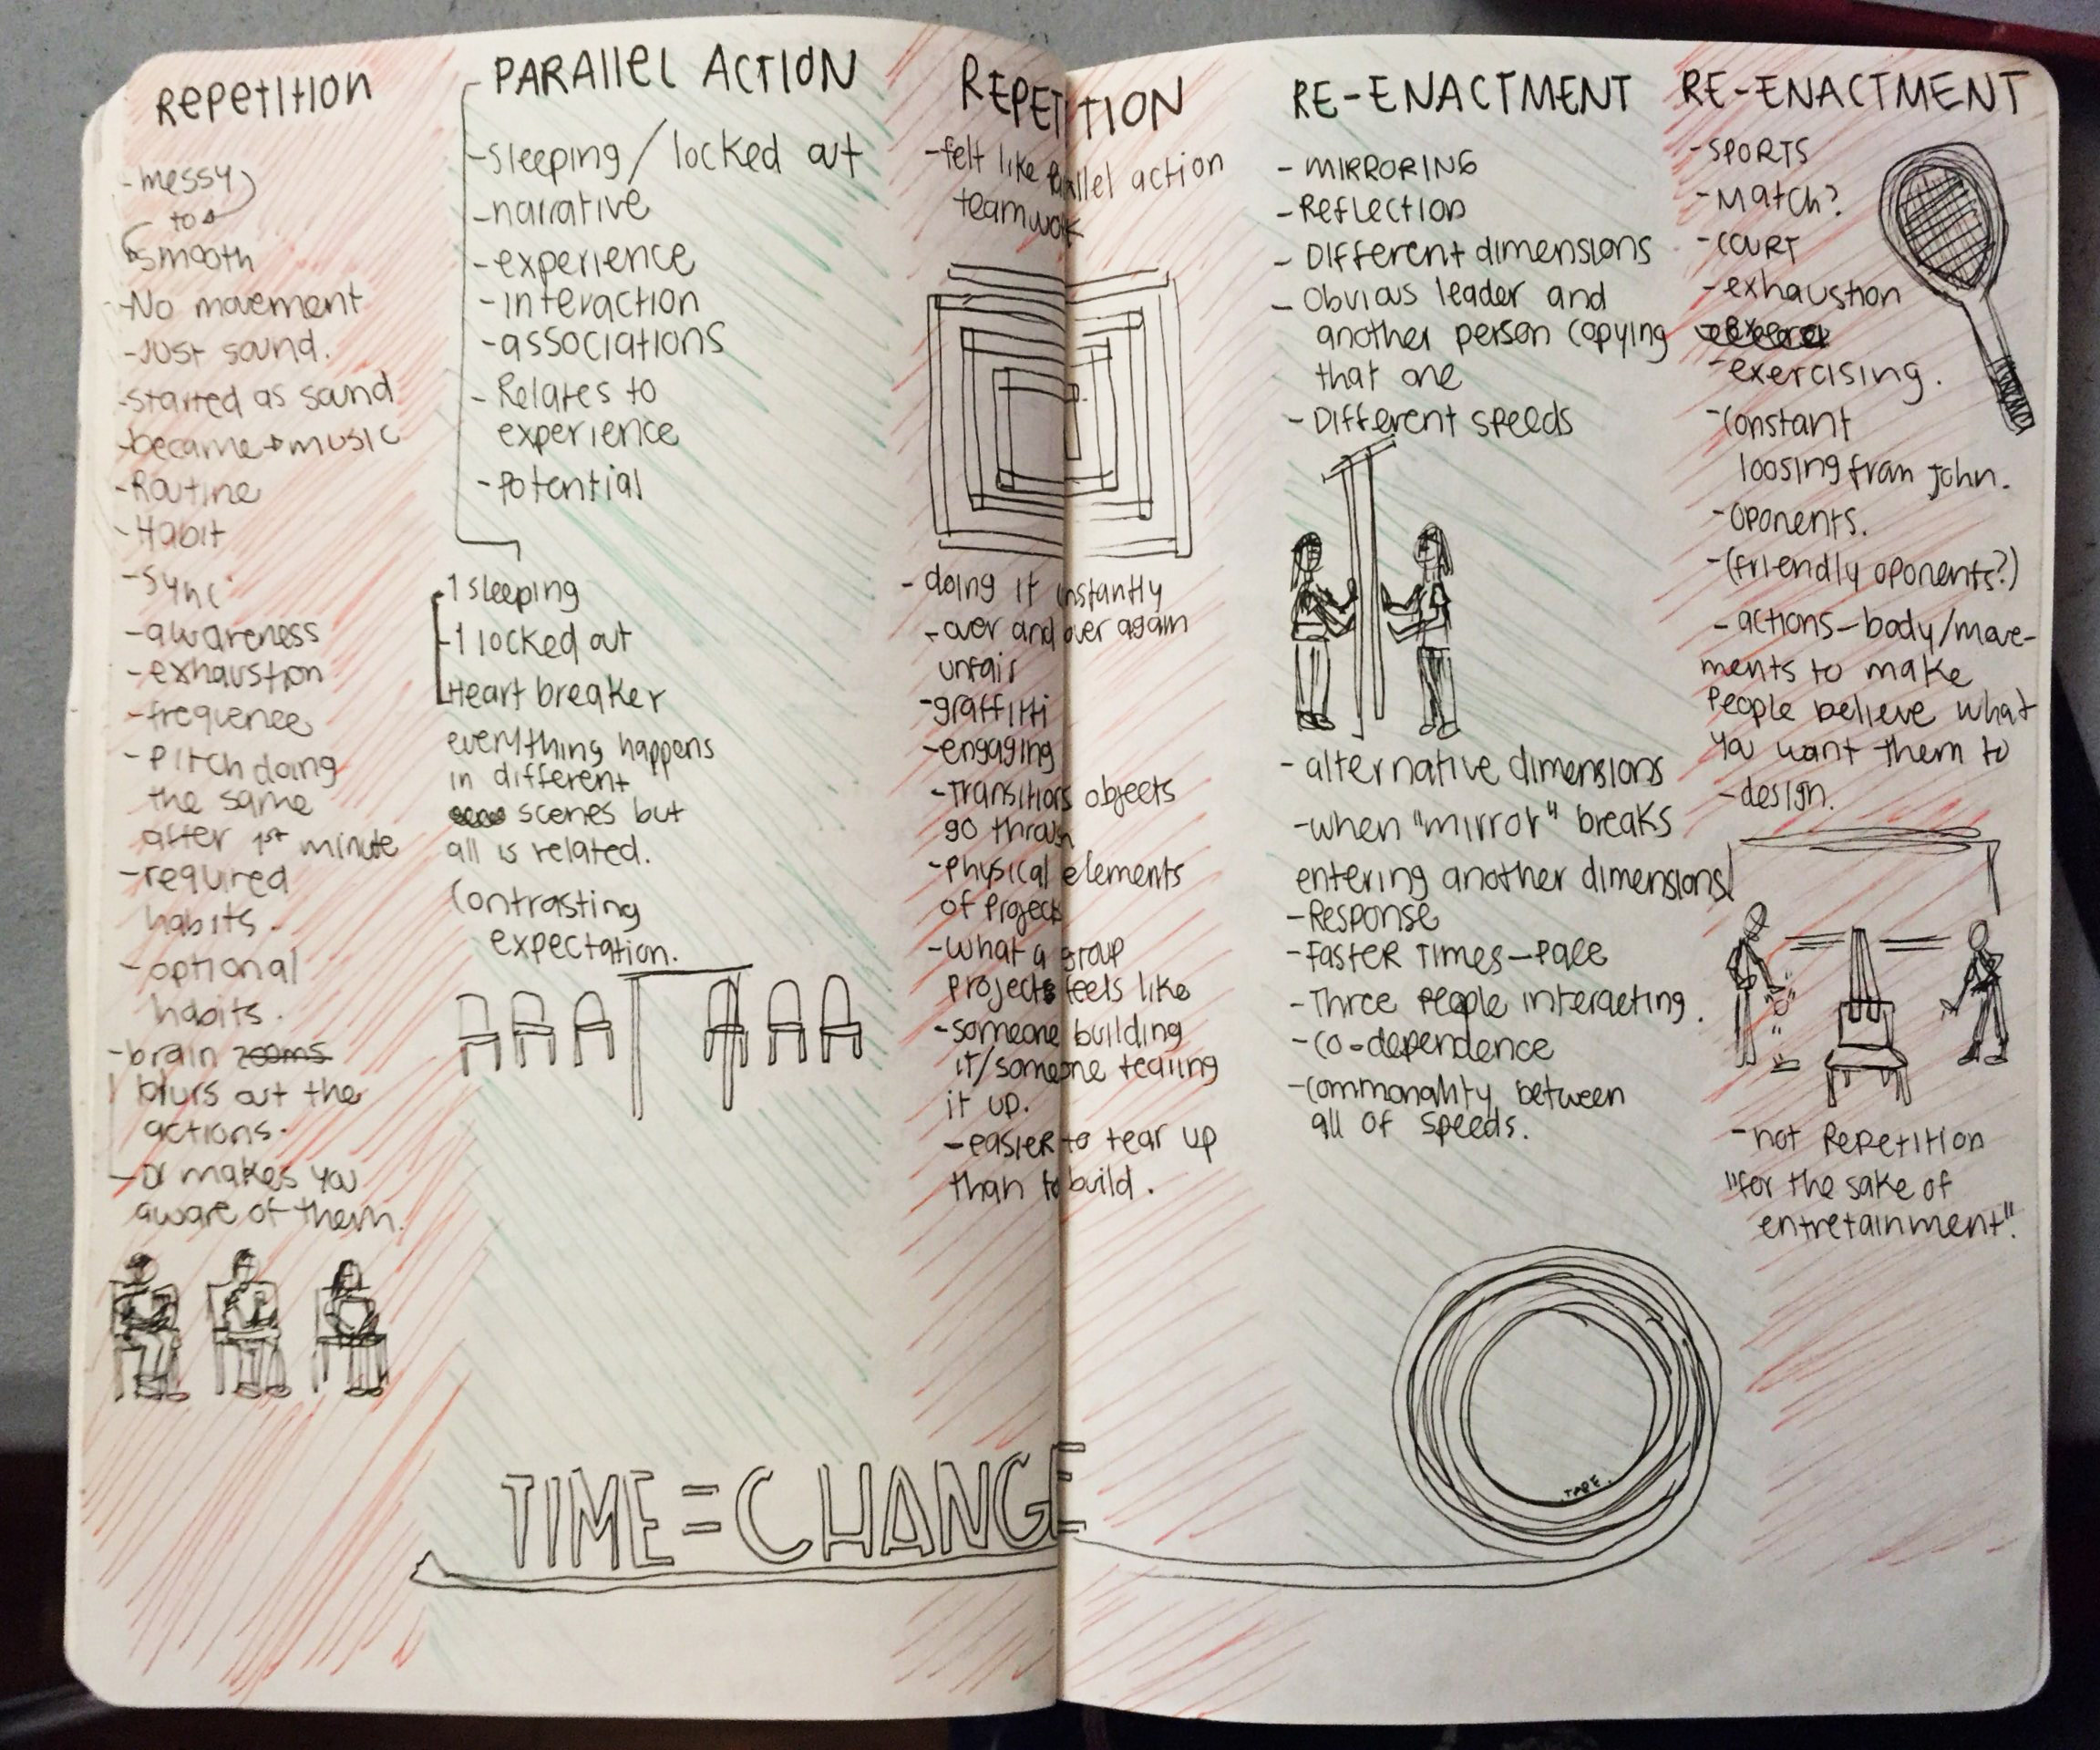 REPETITION
-messy
- to
smooth
-No movement
-Just sound.
-started as sound
-became→music
-Routine
-Habit
-sync
-awareness
-exhaustion
-frequence
-Pitch doing
the same
after 1st minute
-required
habits.
-optional
habits.
-brain zooms
blurs out the
actions.
-Or makes you
aware of them.
PARALLEL ACTION
-sleeping/locked out
-narrative
-experience
-interaction
-associations
-Relates to
experience
-Potential
-1 sleeping
-1 locked out
Heart breaker
everything happens
in different
scenes but
all is related.
Contrasting
expectation.
REPETITION
-felt like parallel action
teamwork
-doing it instantly
-over and over again
unfair
-graffitti
-engaging
-Transitions objects
go through
-Physical elements
of project
-what a group
projects feels like
-someone building
it/someone tearing
it up.
-easier to tear up
than to build.
RE-ENACTMENT
-MIRRORING
-Reflection
-Different dimensions
-Obvious leader and
another person copying
that one
-Different speeds
-alternative dimensions
-when "mirror" breaks
entering another dimensions
-Response
-Faster Times-Pace
-Three people interacting.
-co-dependence
-commonality between
all of speeds.
RE-ENACTMENT
-SPORTS
-Match?
-COURT
-exhaustion
-exercising.
-Constant
loosing from John.
-Oponents.
-(friendly oponents?)
-actions-body/move-
ments to make
People believe what
you want them to
-design.
-not Repetition
"for the sake of
entretainment".
TAPE.
TIME=CHANGE